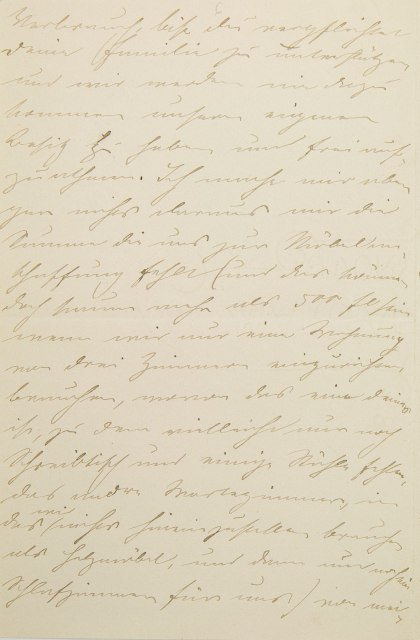 Verbrauch bist du verpflichtet
deine Familie zu unterstützen
und wir werden nie dazu
kommen unseren eigenen
Besitz zu haben und frei auf-
zuathmen. Ich mache mir aber
gar nichts daraus mir die
Summe die uns zur Möbelan-
schaffung fehlt (und das können
doch kaum mehr als 500 fl sein
wenn wir nur eine Wohnung
von drei Zimmern einzurichten
brauchen, wovon das eine deines
ist, zu dem vielleicht nur noch
Schreibtisch und einige Stühle fehlen,
das andre Wartezimmer, in
das wir nichts hineinzustellen brauchen
als Holzmöbel, und dann nur noch ein
Schlafzimmer für uns) von mei-